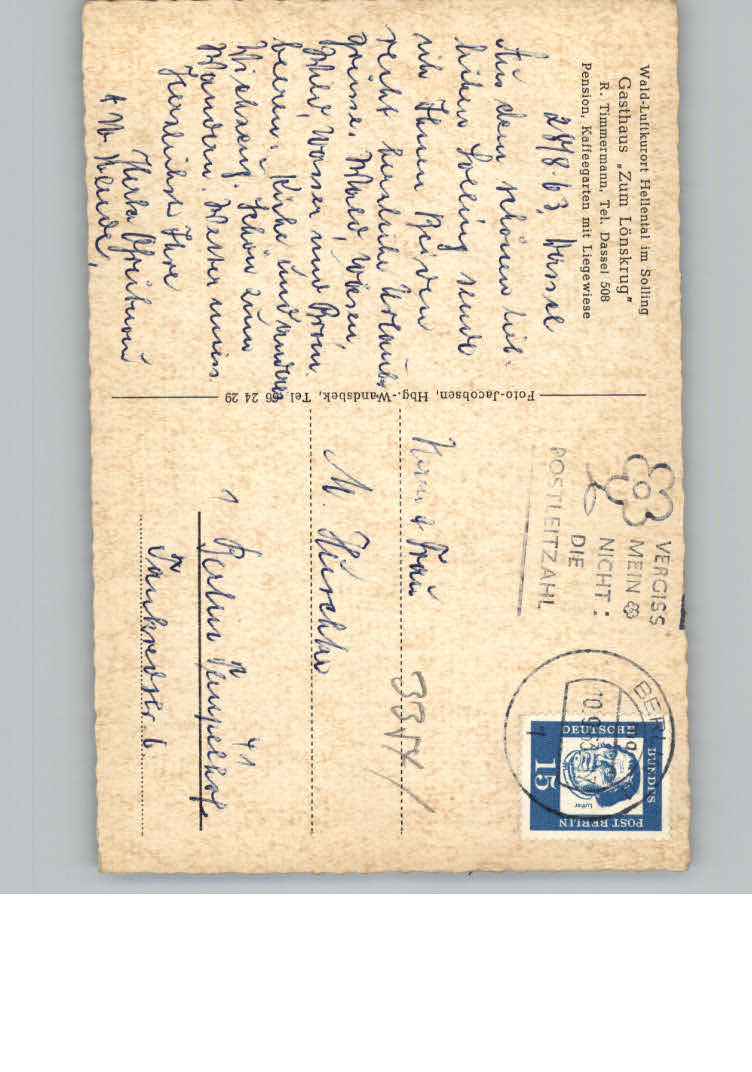 Wald-Luftkurort Hellental im Solling
Gasthaus „Zum Lönskrug"
R. Timmermann, Tel. Dassel 508
Pension, Kaffeegarten mit Liegewiese
28/8.63. Dassel
Aus dem schönen lieb-
lichen Solling sende
ich Ihnen Beiden
recht herzliche Urlaubs
grüsse. Wald, Wiesen,
Wild, Wasser und Brom
beeren. Kühe und anderes
Schön zum
Wandern. Wetter
Herzlichst Ihre
Herta
Foto-Jacobsen, Hbg.-Wandsbek, Tel. 66 24 29
VERGISS
MEIN
NICHT:
DIE
POSTLEITZAHL
BERL
10.9.63
DEUTSCHE
BUNDES
POST BERLIN
15
Luther
Herrn & Frau
M. Hirschke
1 Berlin 41 Tempelhof
Tankredstr. 6.